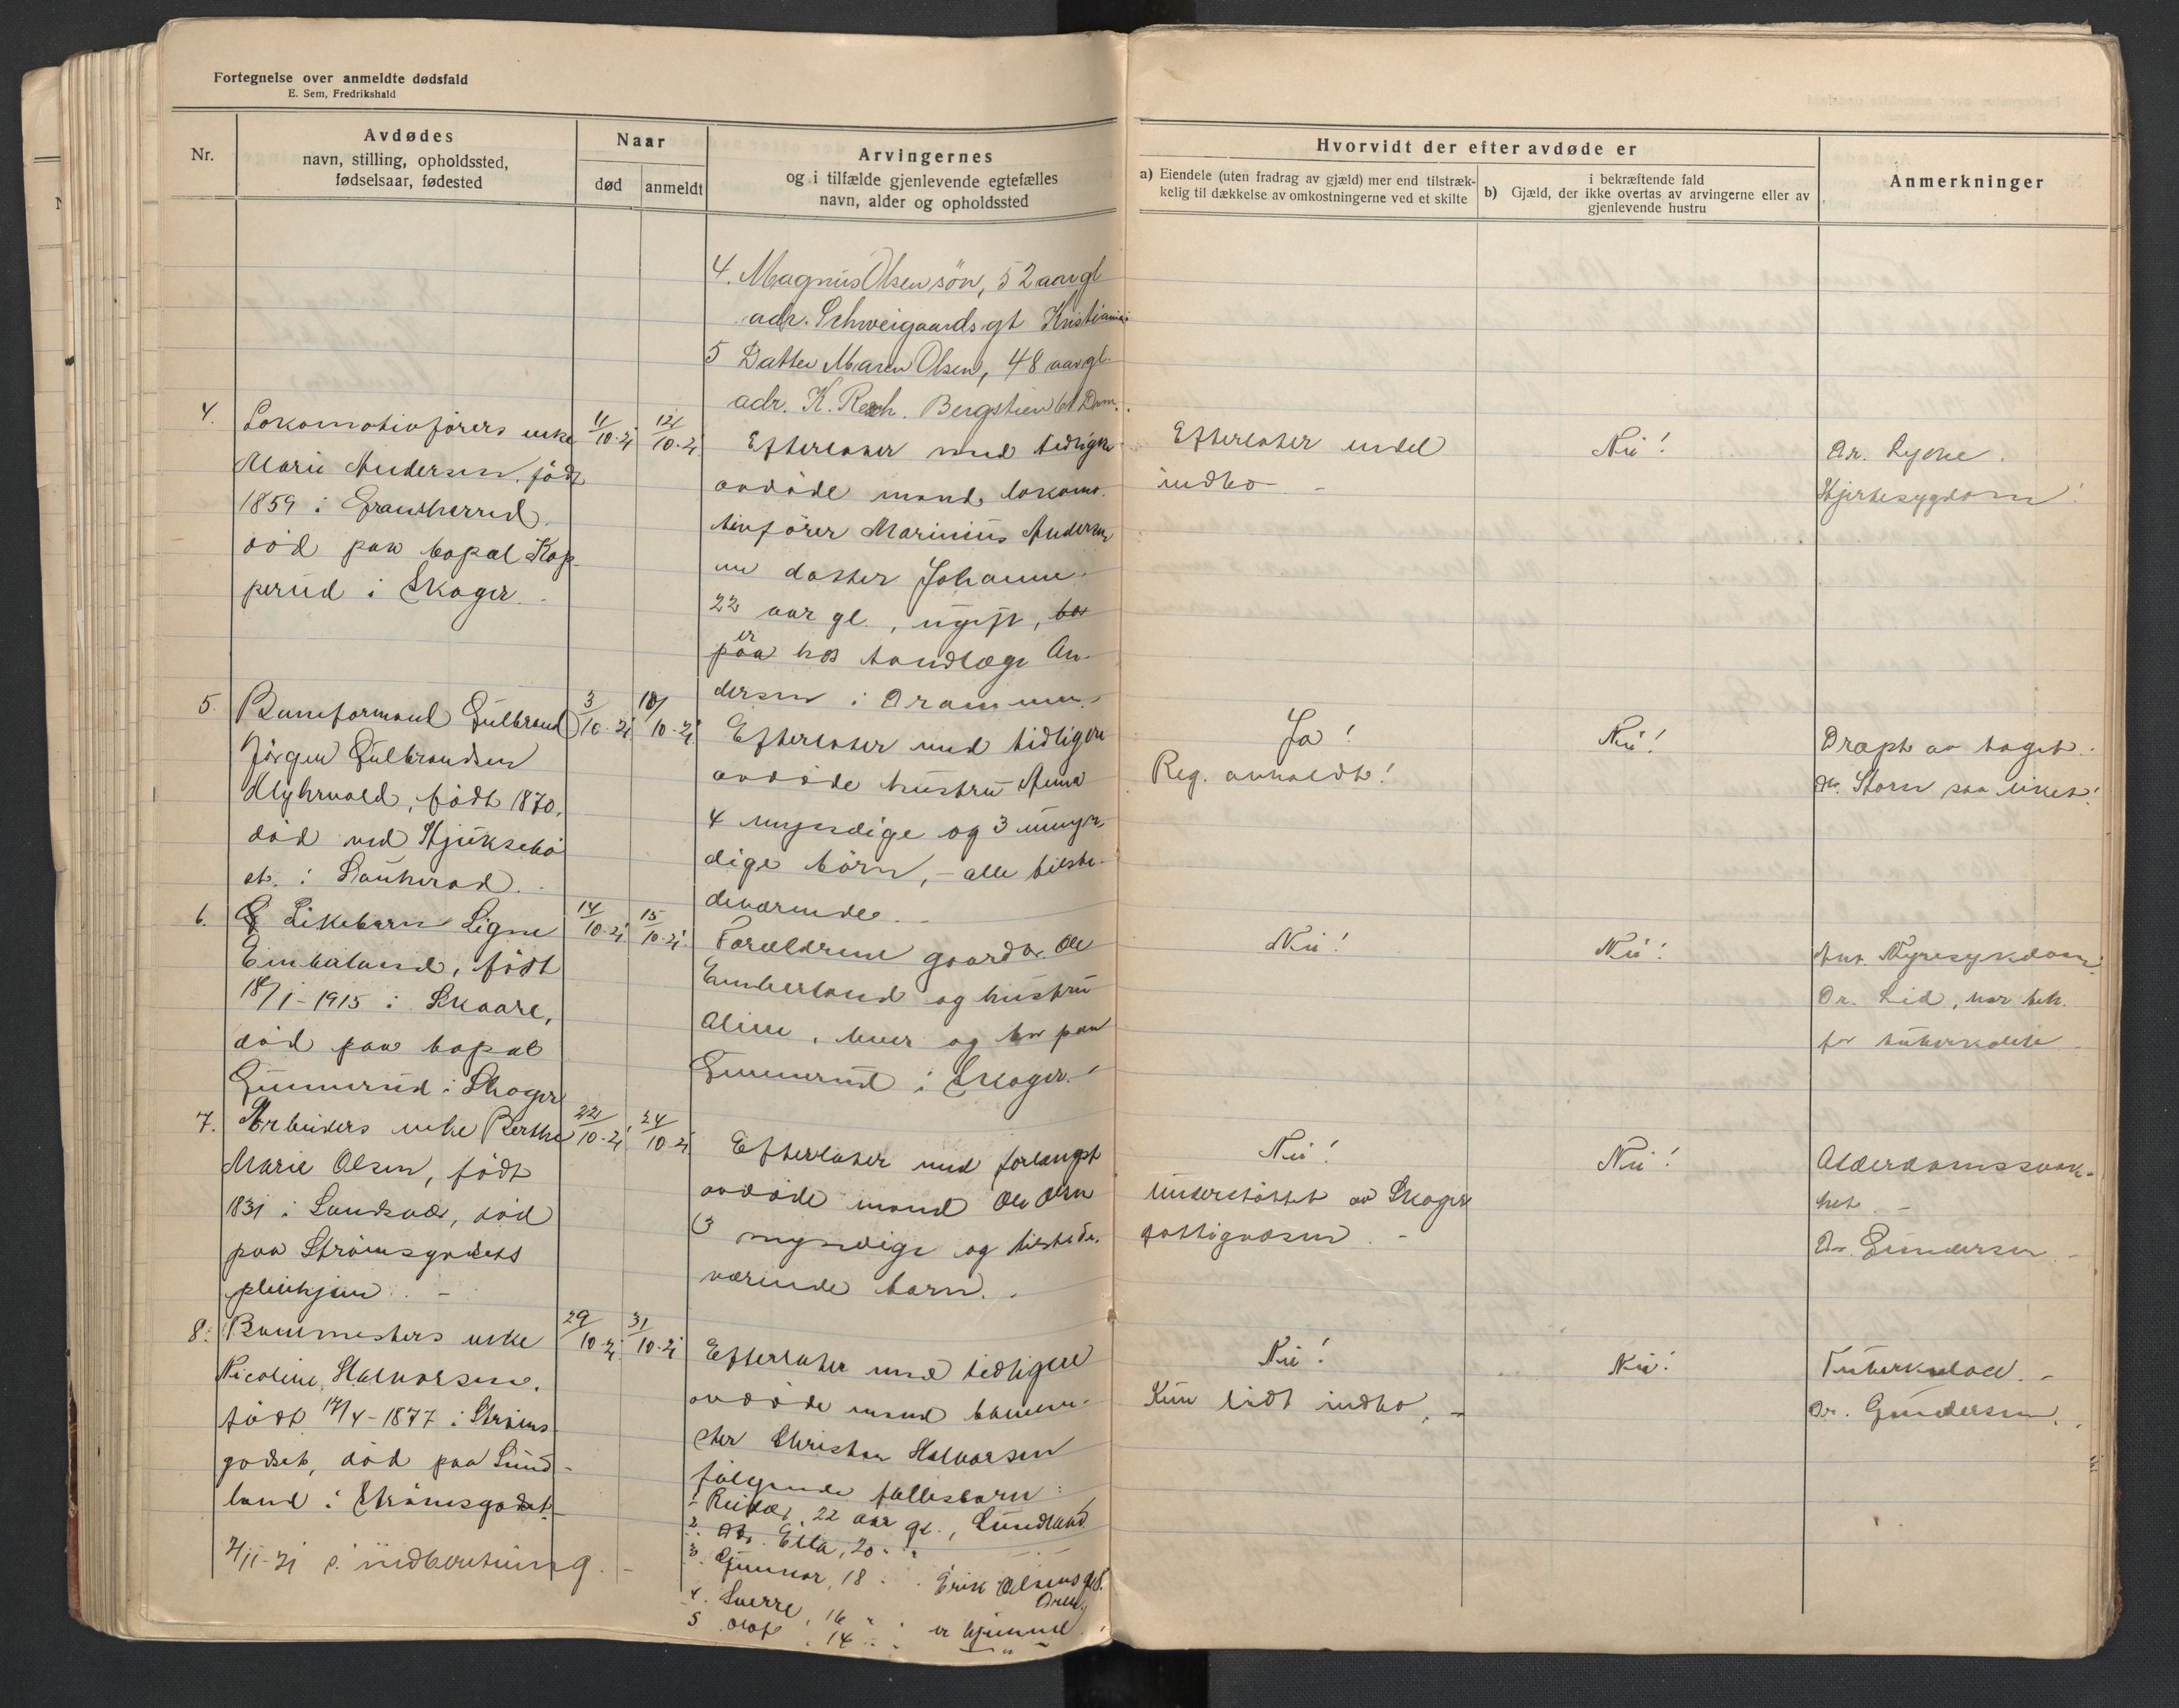 Fortegnelse over anmeldte dødsfald
E. Sem, Fredrikshald
Nr.
Avdødes
navn, stilling, opholdssted,
fødselsaar, fødested
Naar
død
anmeldt
Arvingernes
og i tilfælde gjenlevende egtefælles
navn, alder og opholdssted
Hvorvidt der efter avdøde er
a) Eiendele (uten fradrag av gjæld) mer end tilstræk-
kelig til dækkelse av omkostningerne ved et skilte
i bekræftende fald
b) Gjæld, der ikke overtas av arvingerne eller av
gjenlevende hustru
Anmerkninger
4. Magnus Olsen søn, 52 aar gl
adr. Schweigaards gt Kristiania
5 Datter Maren Olsen, 48 aar gl.
adr. K. Bergstien 61 Drm.
4.
Lokomotivførers enke
Marie Andersen, født
1859 i Gransherred.
død paa bopæl Kop-
perud i Skoger.
11/10-21
12/10-21
Efterlater med tidligere
avdøde mand, lokomo-
tivfører Marinius Andersen
en datter Johanne
22 aar gl., ugift, bor
er
paa hos tandlæge An-
dersen i Drammen.
Efterlater endel
indbo
Nei!
Dr. Lycke.
Hjertesygdom!
5.
Baneformand Gulbrand
Jørgen Gulbrandsen
Myhrvold, født 1870,
død ved Hjuksebø
st. i Sauherad.
3/10-21
18/10-21
Efterlater med tidligere
avdøde hustru Anna
4 myndige og 3 umyn-
dige børn, - alle tilste-
deværende.
Ja!
Reg. avholdt!
Nei!
Dræpt av toget.
Dr. Storm saa liket!
6.
Pikebarn Signe
Emberland, født
18/1-1915 i Skaare,
død paa bopæl
Gunnerud i Skoger
14/10-21
15/10-21
Forældrene gaardbr. Ole
Emberland og hustru
Aline, lever og bor paa
Gunnerud i Skoger.
Nei!
Nei!
Ant. Nyresykdom.
Dr. Lid, har beh.
for tuberkulose
7.
Arbeiders enke Berthe
Marie Olsen, født
1831 i Sandsvær, død
paa Strømsgodsets
pleiehjem. -
22/10-21
24/10-21
Efterlater med forlængst
avdøde mand Ole Olsen
3 myndige og tilstede-
værende barn.
Nei!
Understøttet av Skoger
fattigvæsen. -
Nei!
Alderdomssvak-
het. -
Dr. Gundersen. -
8.
Banemesters enke
Nicoline Halvorsen,
født 17/4-1877 i Strøms-
godset, død paa Sund-
land i Strømsgodset.
29/10-21
31/10-21
Efterlater med tidligere
avdøde mand baneme-
ster Christian Halvorsen
følgende fællesbarn:
1 Reidar, 22 aar gl., Sundland.
2. Ella, 20 " "
3. Gunnar, 18 " " Erik Olsens gt.
Drm.
4. Sverre, 16 " " er hjemme.
5 Olaf, 14 " " - " -
Nei!
Kun lidt indbo. -
Nei!
Tuberkulose. -
Dr. Gundersen.
2/11-21 s. indberetning. -